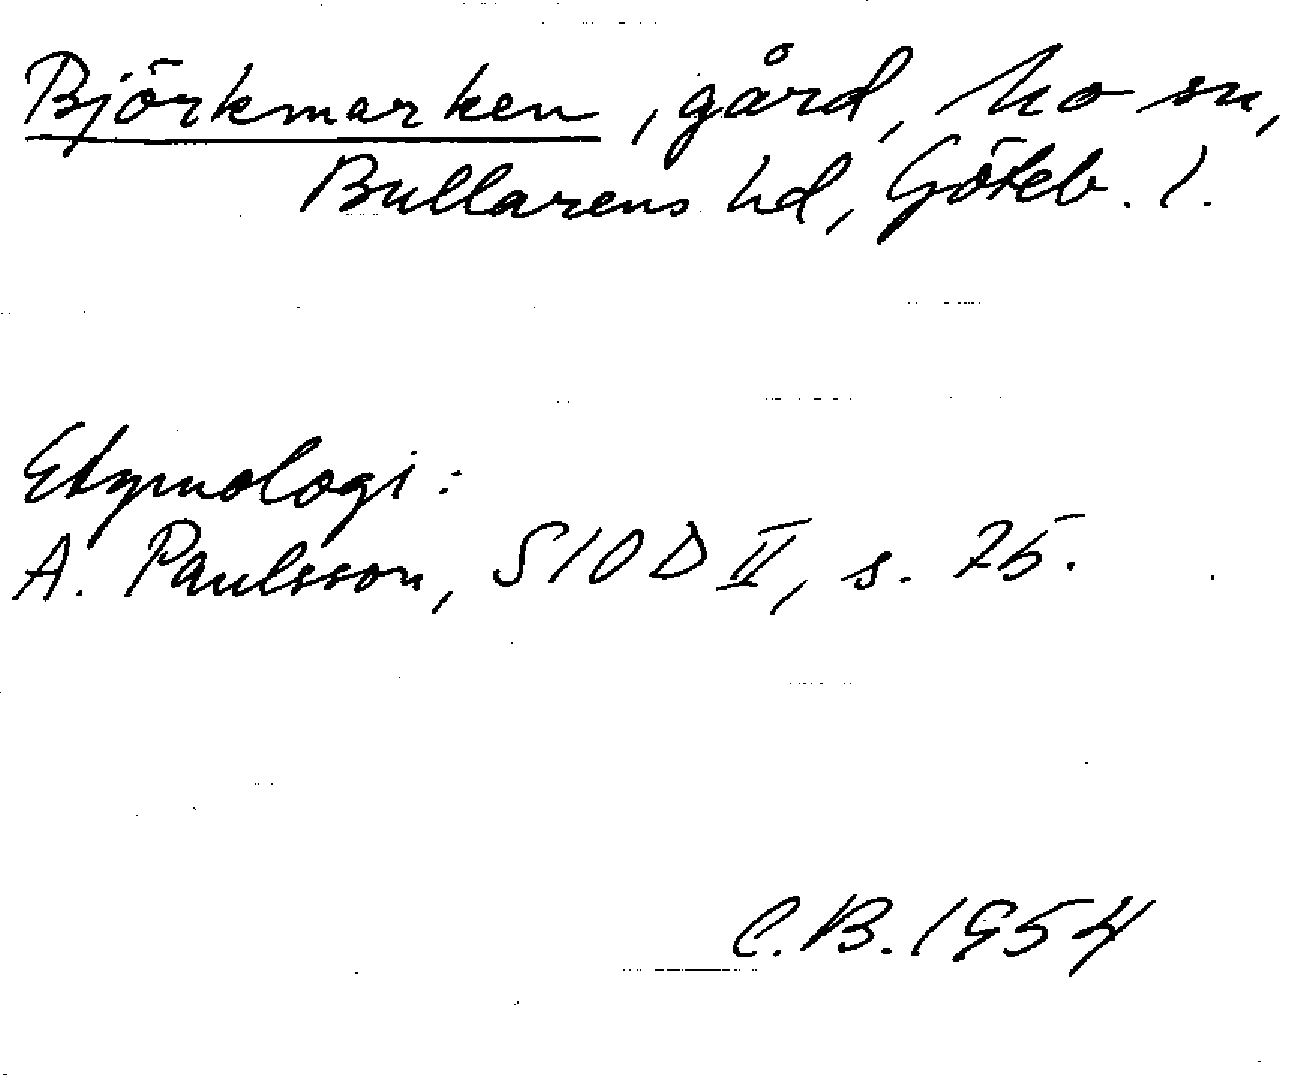 Björkmarken, gård, Mo sn,
Bullarens hd, Göteb. l.
Etymologi:
A. Paulsson, SIOD II, s. 75.
C.B. 1954